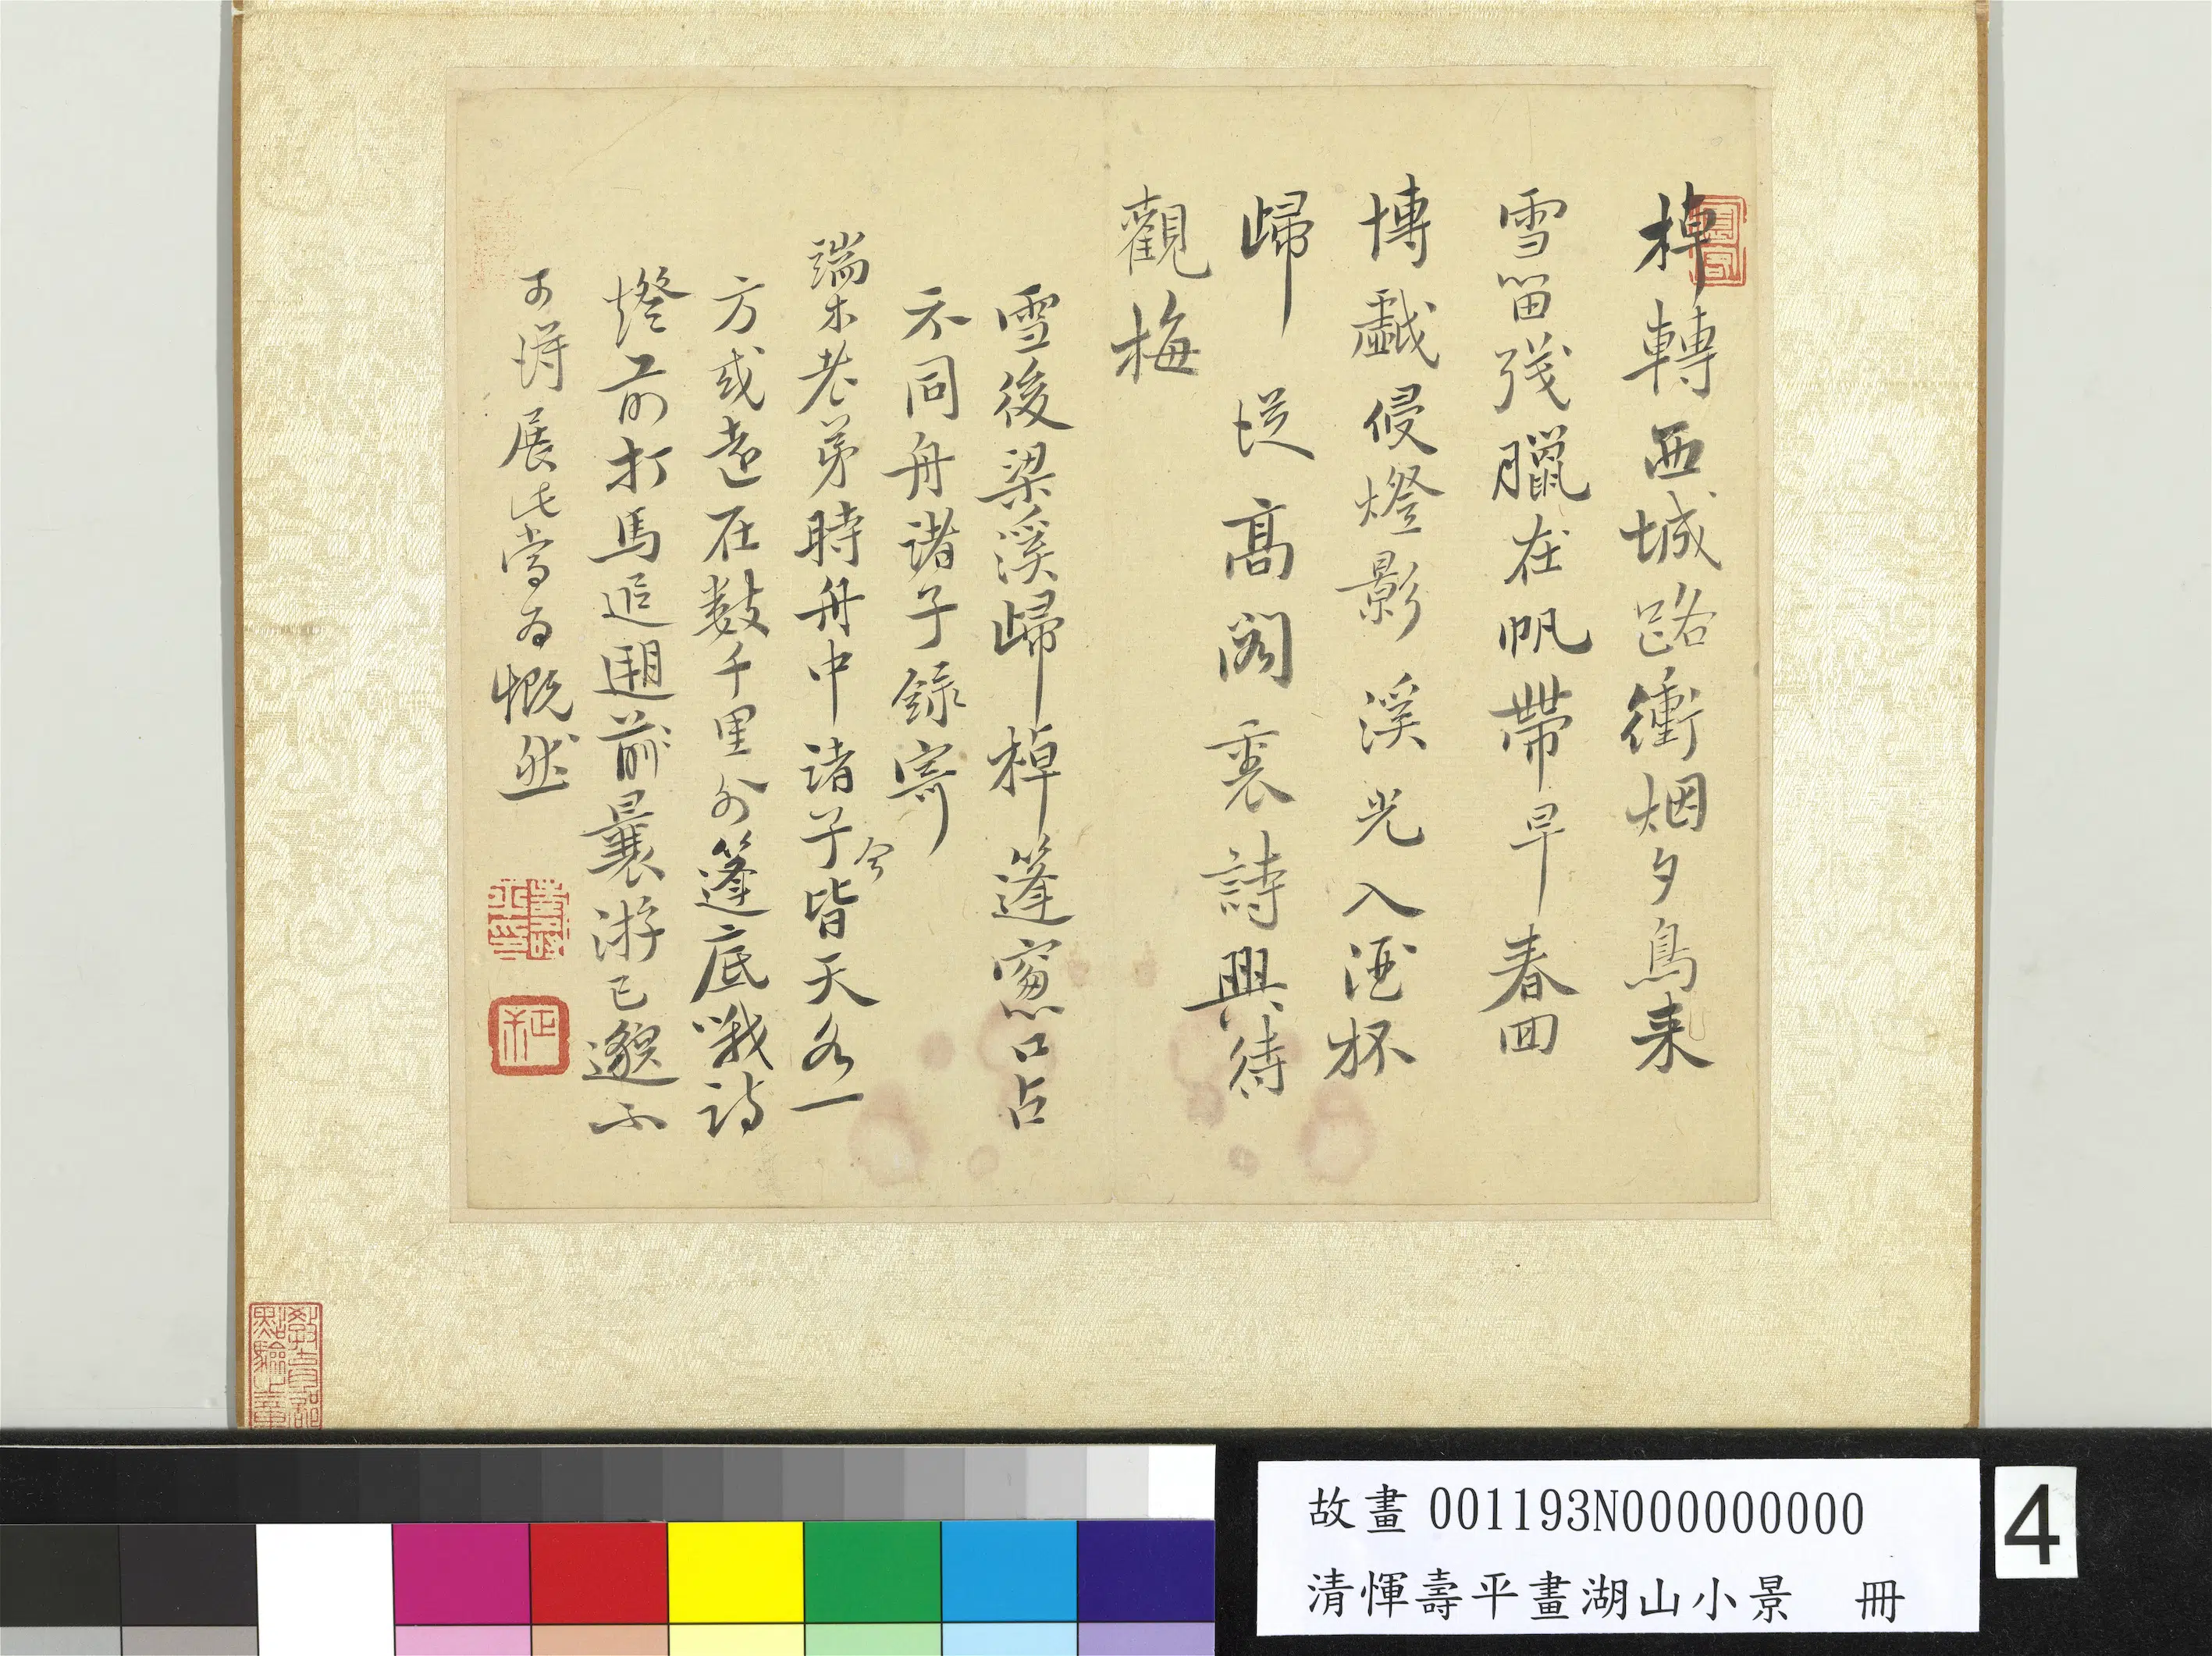 棹轉西城路衝烟夕鳥来
雪笛殘臘在帆帶早春回
博戲侵燈影溪光入酒杯
歸從高閣裏詩興待
觀梅
雪後梁溪歸棹篷窓口占
示同舟諸子錄寄
端木老弟時舟中諸子今皆天各一
方或遠在數千里外篷底哦詩
燈前打馬追遡前曩游已邈不
可得展此當為慨然
教育部
點驗之章
故畫 001193N000000000
清惲壽平畫湖山小景 冊
4